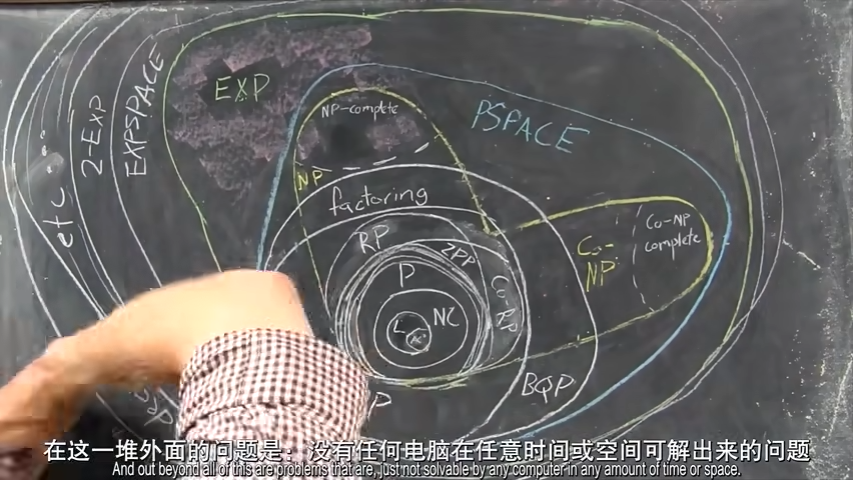 EXP
NP-complete
PSPACE
EXPSPACE
2-EXP
etc...
NP
factoring
RP
ZPP
Co-RP
P
NC
L
Co-NP
Co-NP complete
BQP
P
在这一堆外面的问题是：没有任何电脑在任意时间或空间可解出来的问题
And out beyond all of this are problems that are, just not solvable by any computer in any amount of time or space.